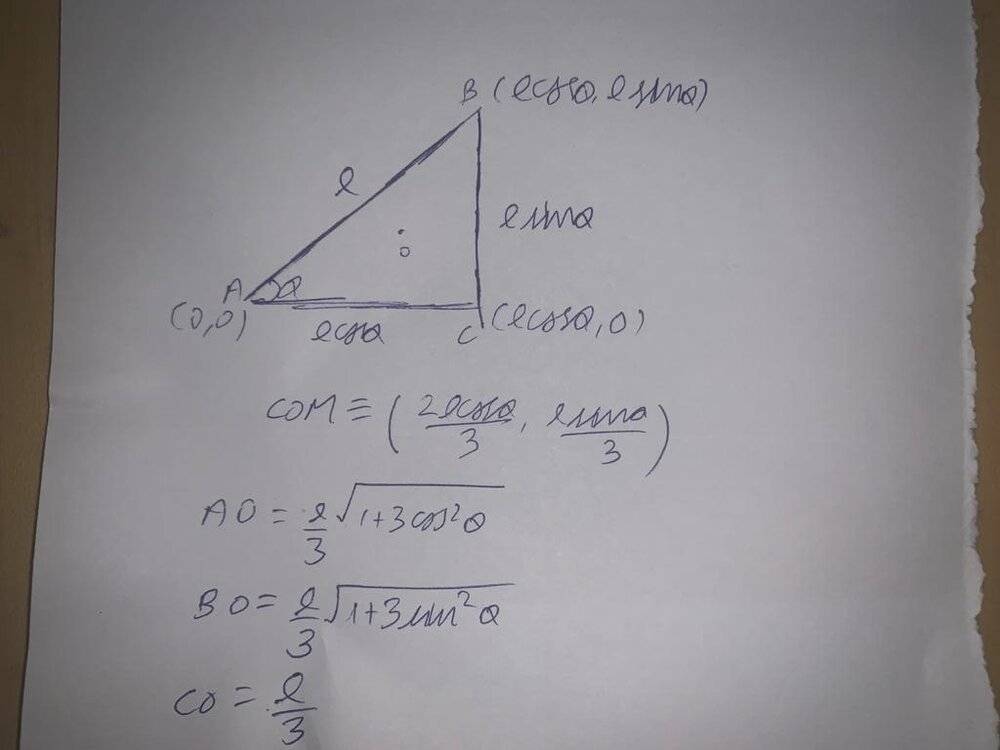 B (ℓcosθ, ℓsinθ)
ℓ
ℓsinθ
O
A θ
(0,0)
ℓcosθ
C (ℓcosθ, 0)
COM ≡ (2ℓcosθ/3, ℓsinθ/3)
AO = ℓ/3 √(1+3cos²θ)
BO = ℓ/3 √(1+3sin²θ)
CO = ℓ/3